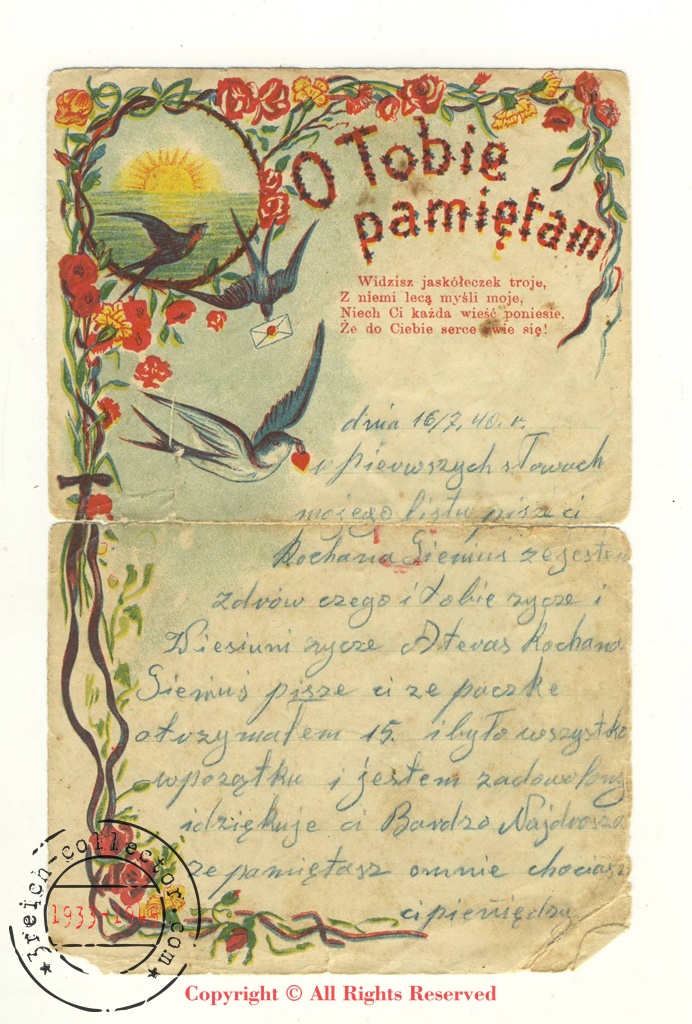 O Tobie
pamiętam
Widzisz jaskółeczek troje,
Z niemi lecą myśli moje,
Niech Ci każda wieść poniesie,
Że do Ciebie serce rwie się!
dnia 16/7, 40. r.
w pierwszych słowach
mojego listu pisze ci
Kochana Gieniuś ze jestem
zdrów czego i tobie rzycze i
Wiesiuni rzycze Ateras Kochana
Gieniuś pisze ci ze paczke
otrzymałem 15. i było wszystko
wporzątku i jestem zadowolony
idziękuje ci Bardzo Najdrosza
ze pamiętasz omnie chociasz
ci pieniędzy
3reich-collector.com
1933-1945
Copyright © All Rights Reserved